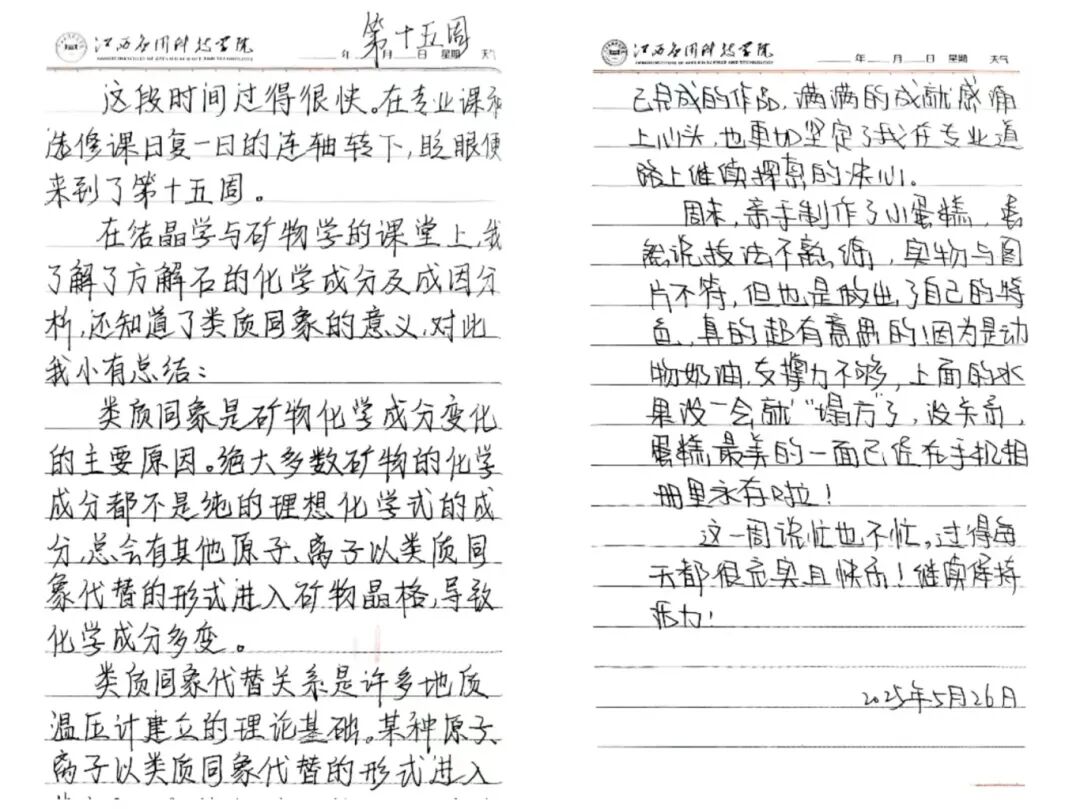 江西应用科技学院
第十五周
年 月 日 星期 天气
这段时间过得很快。在专业课和
选修课日复一日的连轴转下,眨眼便
来到了第十五周。
在结晶学与矿物学的课堂上,我
了解了方解石的化学成分及成因分
析,还知道了类质同象的意义,对此
我小有总结:
类质同象是矿物化学成分变化
的主要原因。绝大多数矿物的化学
成分都不是纯的理想化学式的成
分,总会有其他原子、离子以类质同
象代替的形式进入矿物晶格,导致
化学成分多变。
类质同象代替关系是许多地质
温压计建立的理论基础。某种原子、
离子以类质同象代替的形式进入
江西应用科技学院
年 月 日 星期 天气
已完成的作品,满满的成就感涌
上心头,也更加坚定了我在专业道
路上继续探索的决心。
周末,亲手制作了小蛋糕,虽
然说技法不熟练,实物与图
片不符,但也是做出了自己的特
色,真的超有意思的!因为是动
物奶油,支撑力不够,上面的水
果没一会就“塌方”了,没关系,
蛋糕最美的一面已经在手机相
册里永存啦!
这一周说忙也不忙,过得每
天都很充实且快乐!继续保持
活力!
2025年5月26日